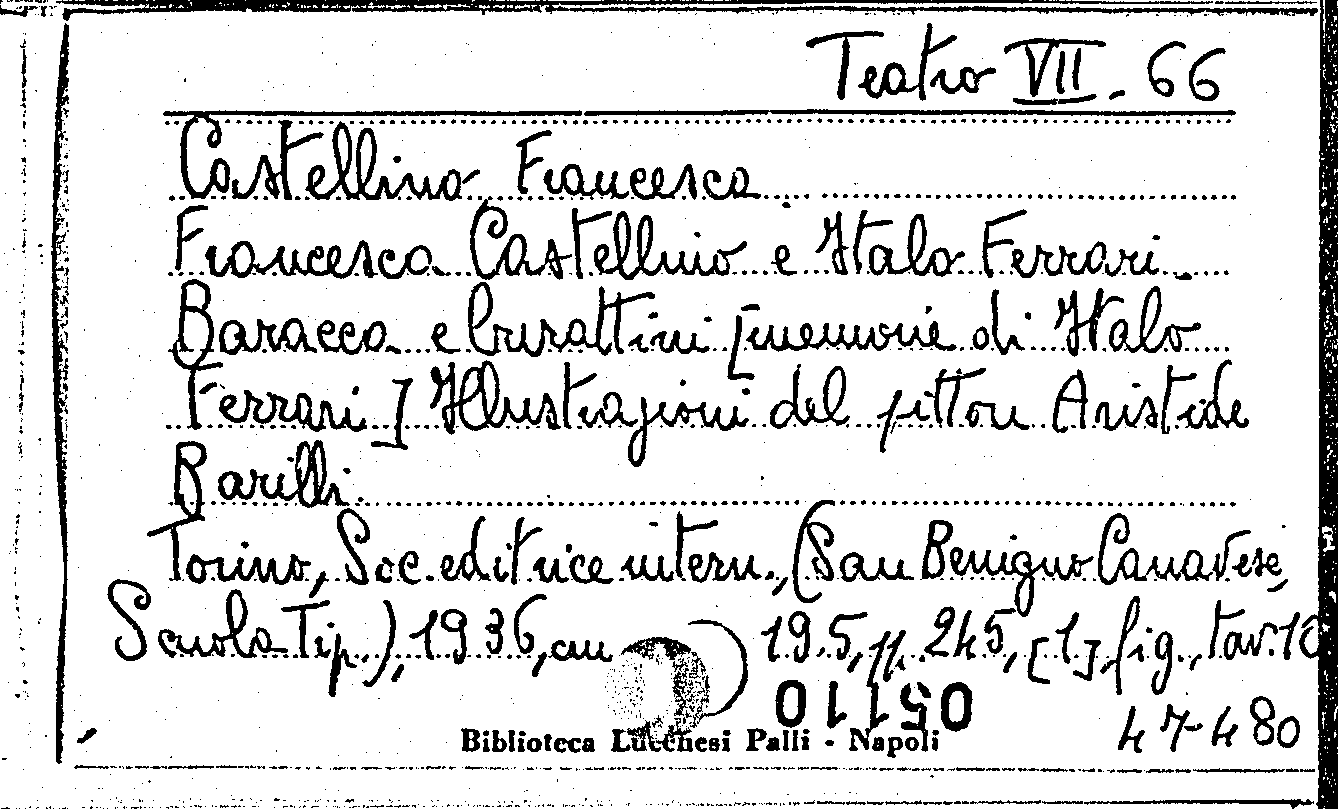 Teatro VII - 66
Castellino, Francesca
Francesca Castellino e Italo Ferrari.
Baracca e burattini [memorie di Italo
Ferrari] Illustrazioni del pittore Aristide
Barilli.
Torino, Soc. editrice intern., (San Benigno Canavese,
Scuola Tip.), 1936, cm 19.5, pp. 245, [1], fig., tav.
05110
47480
Biblioteca Lucchesi Palli - Napoli